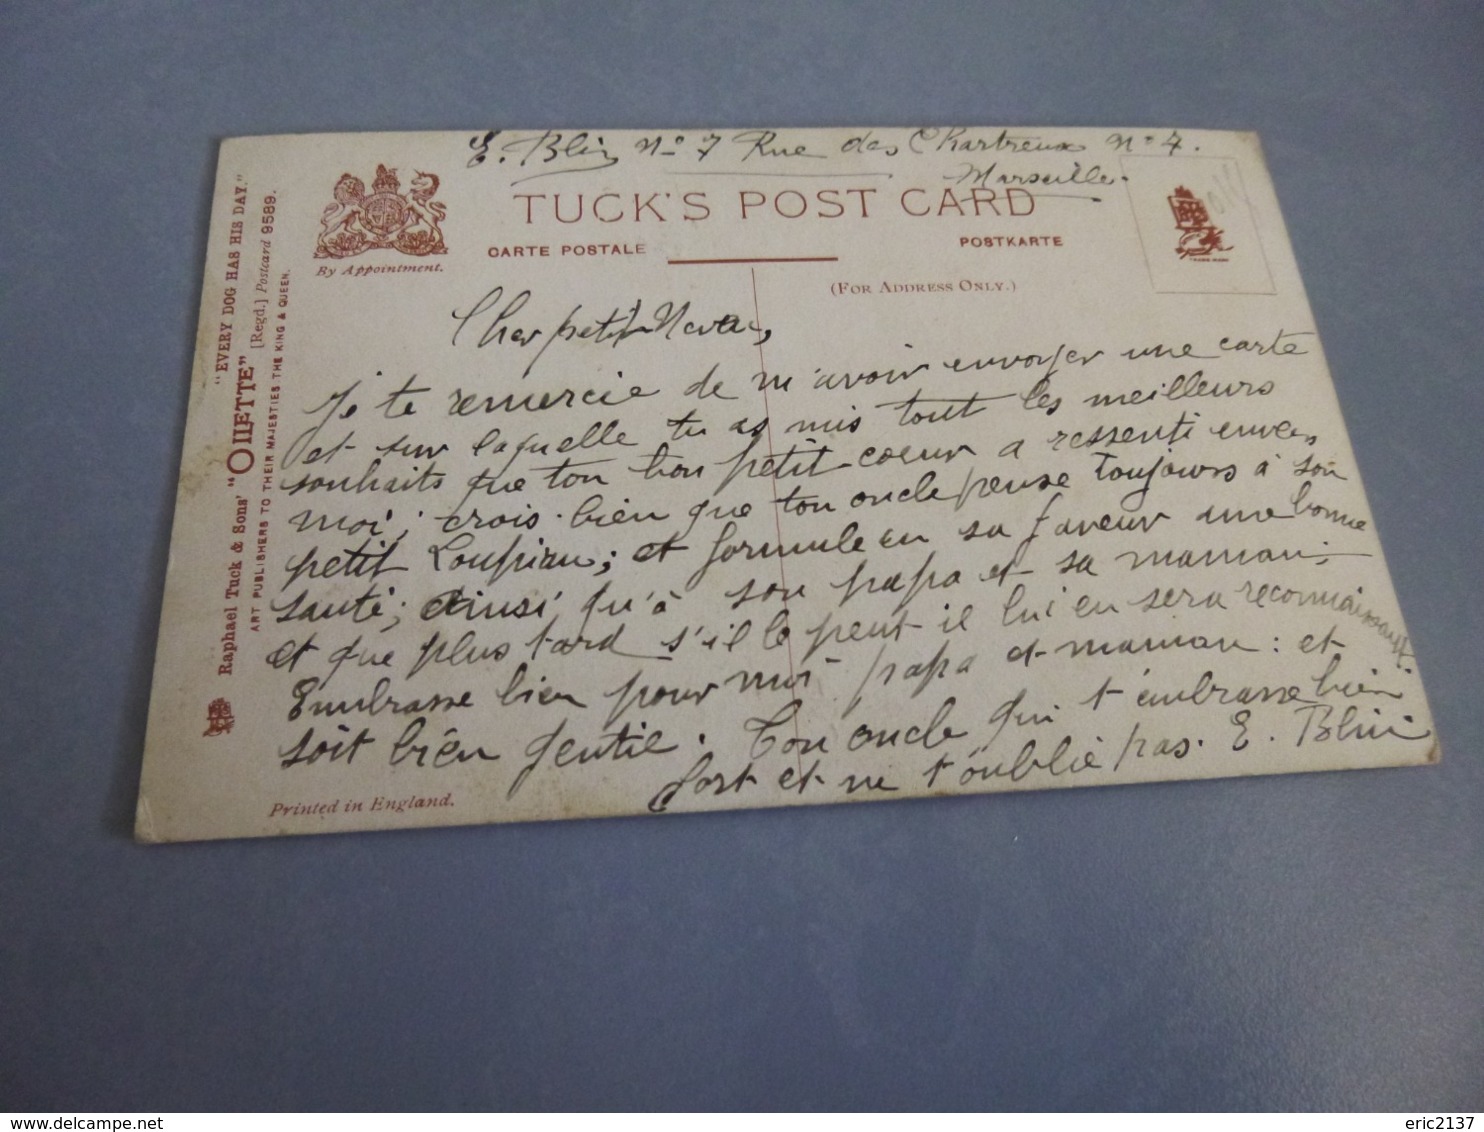 E. Blin, N° 7 Rue des Chartreux N° 7.
Marseille.
TUCK'S POST CARD
CARTE POSTALE
POSTKARTE
(FOR ADDRESS ONLY.)
By Appointment.
TRADE MARK
"EVERY DOG HAS HIS DAY."
Raphael Tuck & Sons' "OILETTE" [Regd.] Postcard 9589.
ART PUBLISHERS TO THEIR MAJESTIES THE KING & QUEEN.
Cher petit Neveu,
Je te remercie de m'avoir envoyer une carte
et sur laquelle tu as mis tout les meilleurs
souhaits que ton bon petit coeur a ressenti envers
moi; crois-bien que ton oncle pense toujours à son
petit Loupiau; et formule en sa faveur une bonne
santé; ainsi qu'à son papa et sa maman;
et que plus tard s'il le peut il lui en sera reconnaissant.
Embrasse bien pour moi papa et maman: et
soit bien gentil. Ton oncle qui t'embrasse bien
fort et ne t'oublie pas. E. Blin
Printed in England.
delcampe.net
eric2137